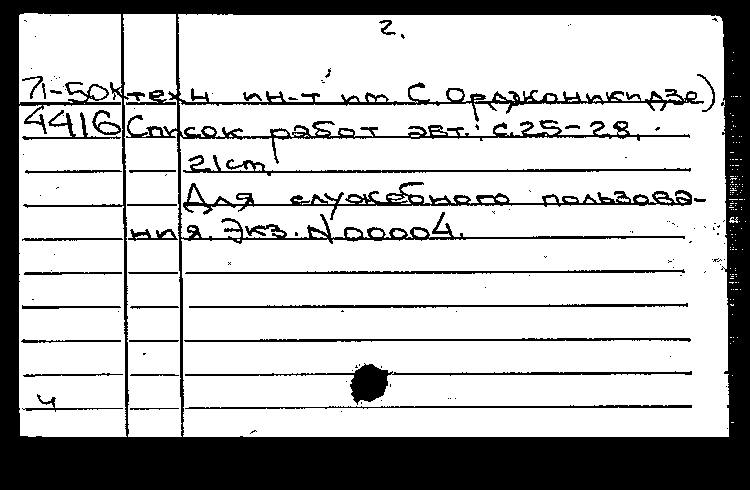 2.
Л-50К техн ин-т им. С. Орджоникидзе)
4416 Список работ авт.: с.25-28.
21cm
Для служебного пользова-
ния. Экз. N 00004.
ч